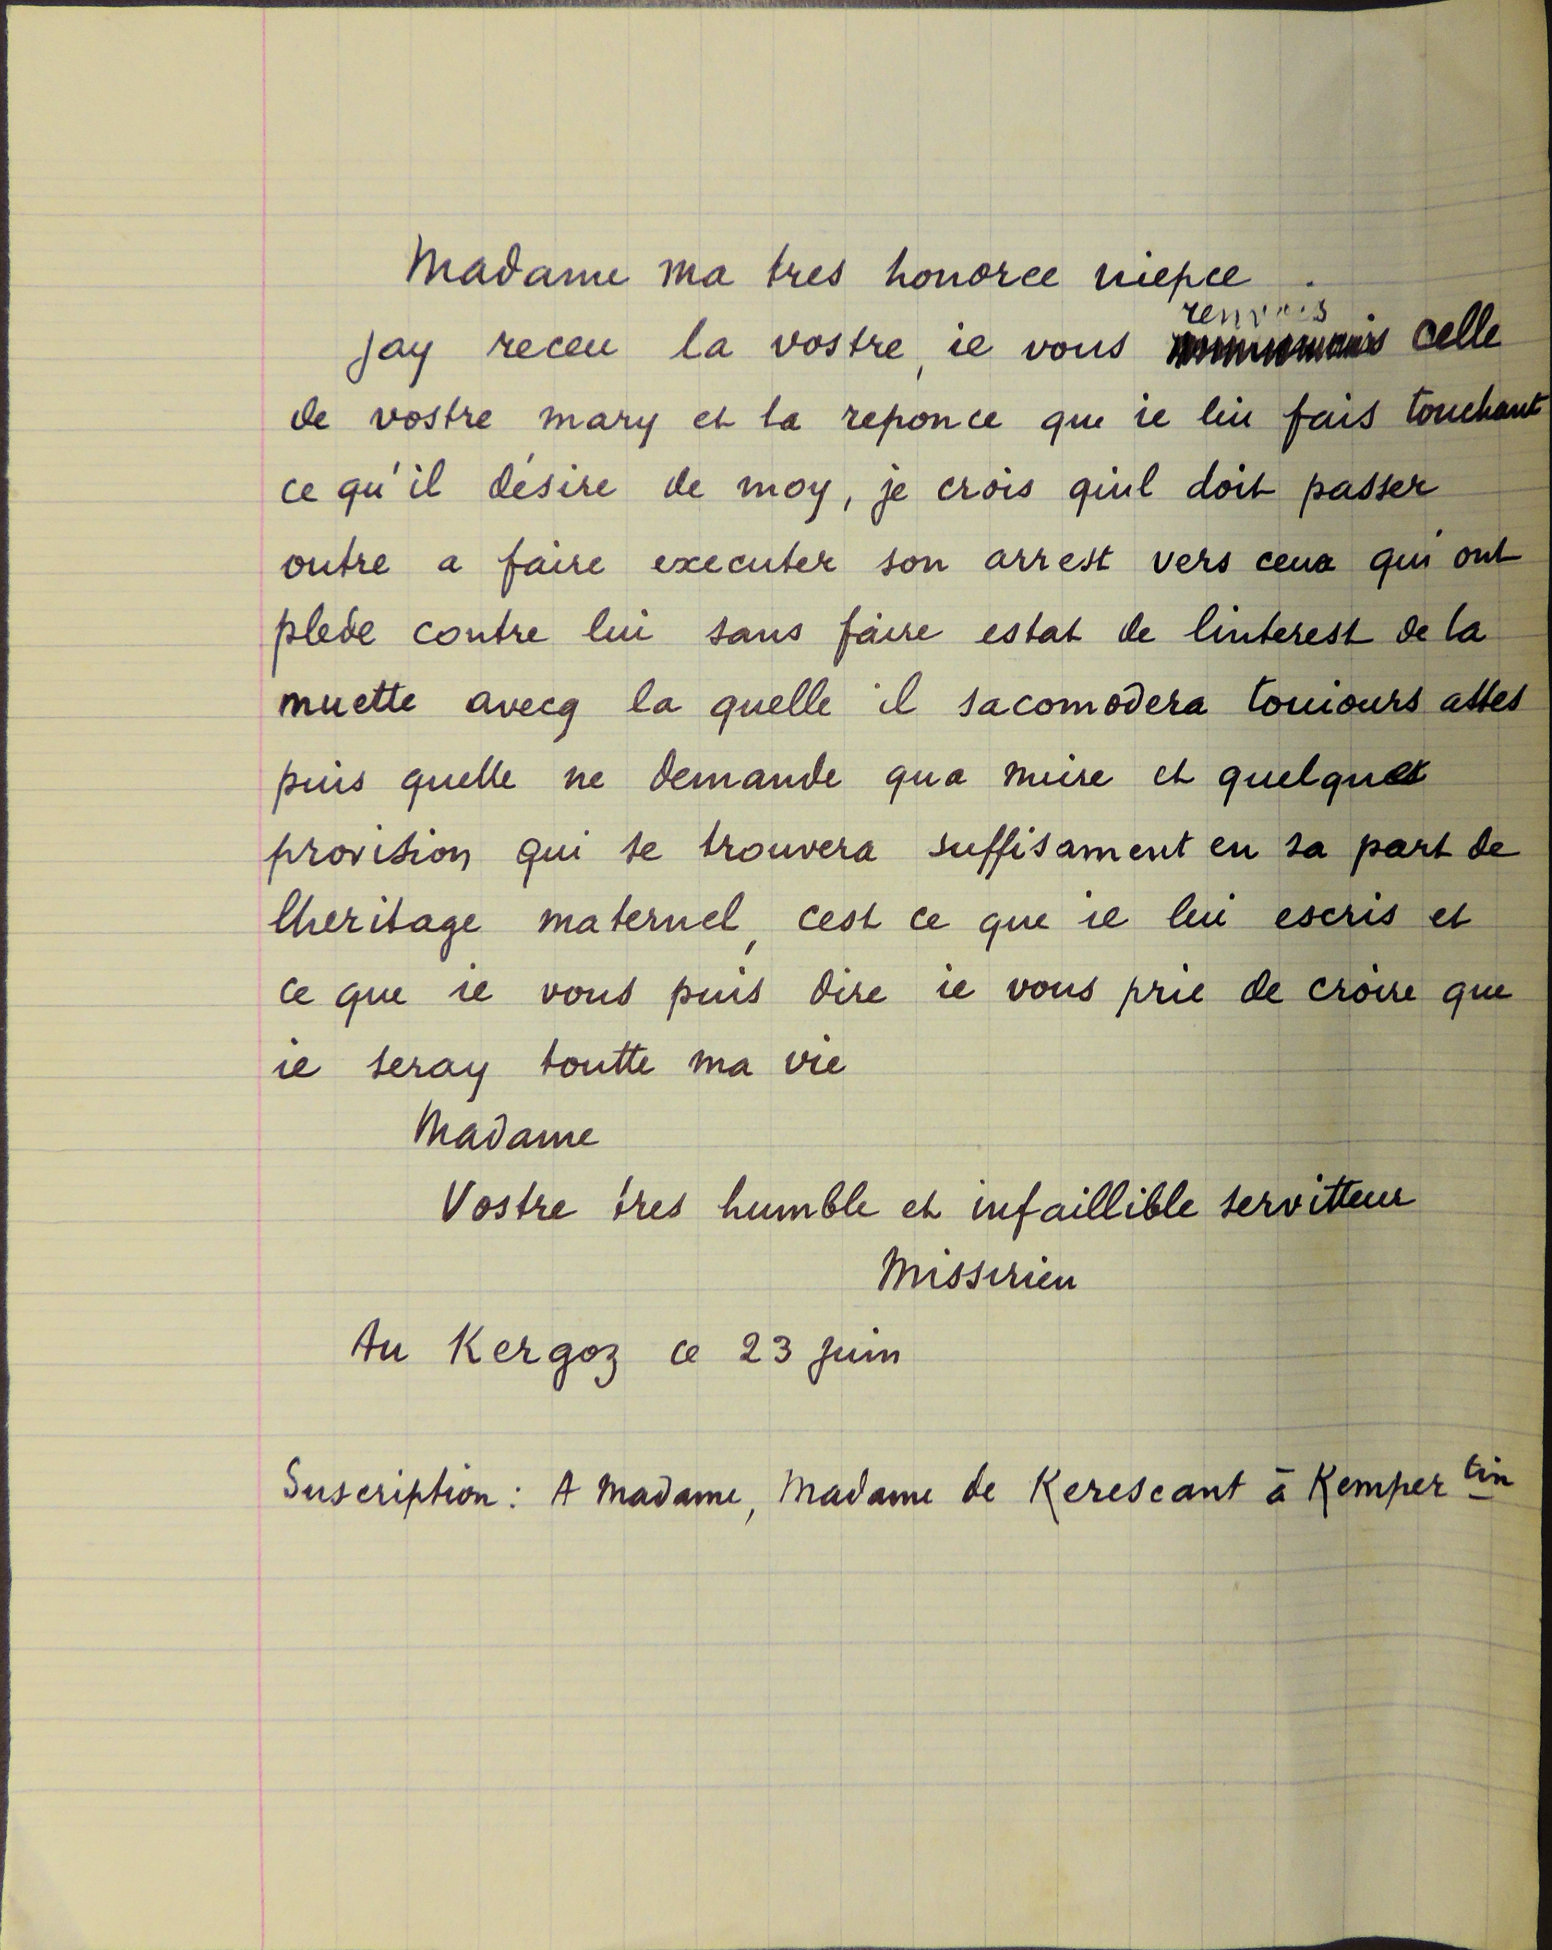 Madame ma tres honoree niepce
Jay receu la vostre, ie vous renvois celle
de vostre mary et la reponce que ie lui fais touchant
ce qu'il désire de moy, je crois quil doit passer
outre a faire executer son arrest vers ceux qui ont
plede contre lui sans faire estat de linterest de la
muette avecq la quelle il sacomodera touiours asses
puis quelle ne demande qua et quelques
provision qui se trouvera suffisament en sa part de
lheritage maternel, cest ce que ie lui escris et
ce que ie vous puis dire ie vous prie de croire que
ie seray toutte ma vie
Madame
Vostre tres humble et infaillible servitteur
Missirien
Au Kergoz ce 23 juin
Suscription : A Madame, Madame de Kerescant à Kemper tin